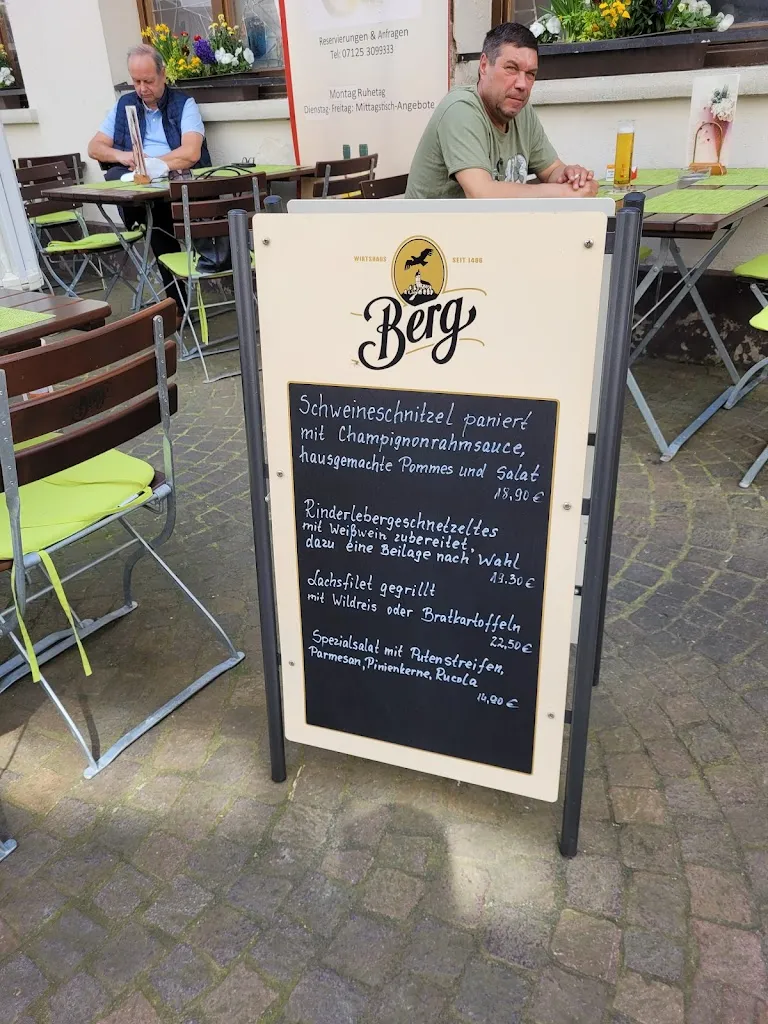 Reservierungen & Anfragen
Tel: 07125 3099333
Montag Ruhetag
Dienstag-Freitag: Mittagstisch-Angebote
WIRTSHAUS SEIT 1466
Berg
Schweineschnitzel paniert
mit Champignonrahmsauce,
hausgemachte Pommes und Salat
18,90 €
Rinderlebergeschnetzeltes
mit Weißwein zubereitet,
dazu eine Beilage nach Wahl
19.30 €
Lachsfilet gegrillt
mit Wildreis oder Bratkartoffeln
22,50 €
Spezialsalat mit Putenstreifen,
Parmesan, Pinienkerne, Rucola
14,90 €